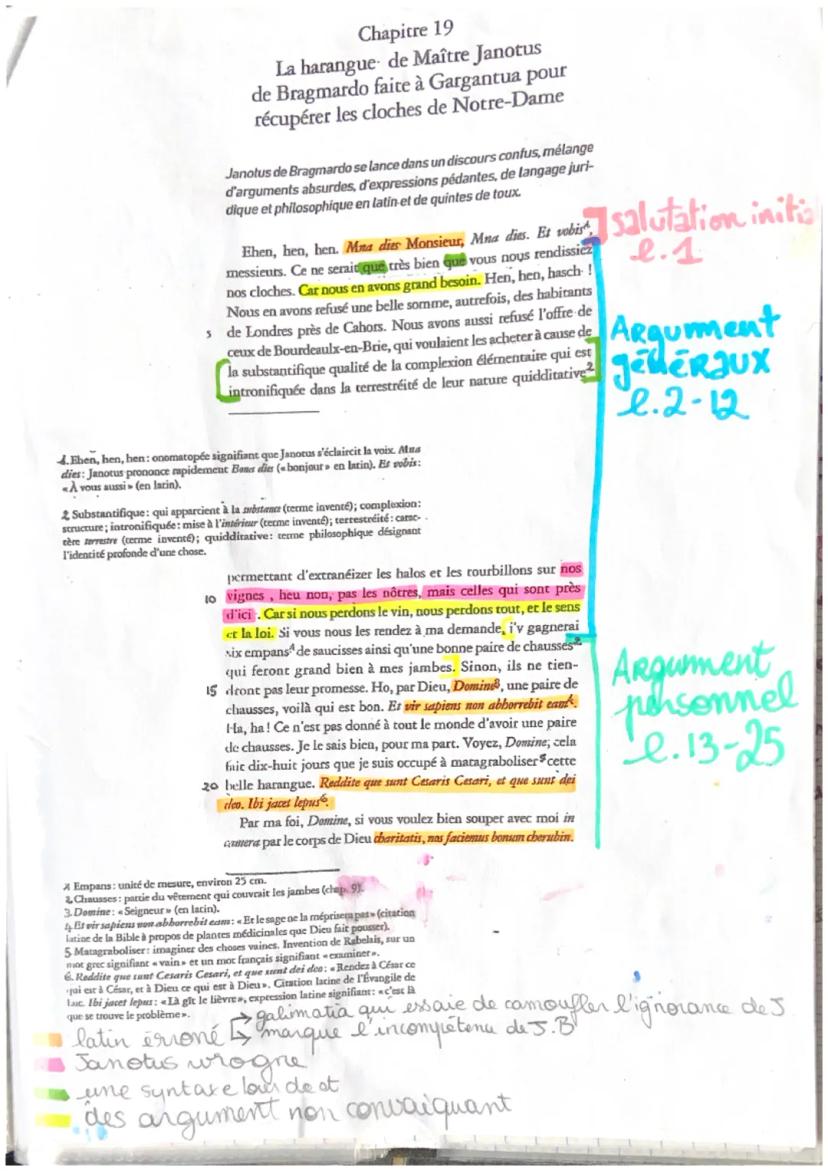 Chapitre 19
La harangue de Maître Janotus
de Bragmardo faite à Gargantua pour
récupérer les cloches de Notre-Dame
Janotus de Bragmardo se lance dans un discours confus, mélange
d'arguments absurdes, d'expressions pédantes, de langage juri-
dique et philosophique en latin et de quintes de toux.
Ehen, hen, hen. Mna dies Monsieur, Mna dies. Et vobis1,
messieurs. Ce ne serait que très bien que vous nous rendissiez
nos cloches. Car nous en avons grand besoin. Hen, hen, hasch !
Nous en avons refusé une belle somme, autrefois, des habitants
5 de Londres près de Cahors. Nous avons aussi refusé l'offre de
ceux de Bourdeaulx-en-Brie, qui voulaient les acheter à cause de
la substantifique qualité de la complexion élémentaire qui est
intronifiquée dans la terrestréité de leur nature quidditative2
salutation initia
l.1
Argument
généraux
l.2-12
1. Ehen, hen, hen : onomatopée signifiant que Janotus s'éclaircit la voix. Mna
dies : Janotus prononce rapidement Bona dies (« bonjour » en latin). Et vobis :
« À vous aussi » (en latin).
2. Substantifique : qui appartient à la substance (terme inventé) ; complexion :
structure ; intronifiquée : mise à l'intérieur (terme inventé) ; terrestréité : carac-
tère terrestre (terme inventé) ; quidditative : terme philosophique désignant
l'identité profonde d'une chose.
permettant d'extranéizer les halos et les tourbillons sur nos
10 vignes , heu non, pas les nôtres, mais celles qui sont près
d'ici . Car si nous perdons le vin, nous perdons tout, et le sens
et la loi. Si vous nous les rendez à ma demande, j'y gagnerai
six empans1 de saucisses ainsi qu'une bonne paire de chausses2
qui feront grand bien à mes jambes. Sinon, ils ne tien-
15 dront pas leur promesse. Ho, par Dieu, Domine3, une paire de
chausses, voilà qui est bon. Et vir sapiens non abhorrebit eam4.
Ha, ha ! Ce n'est pas donné à tout le monde d'avoir une paire
de chausses. Je le sais bien, pour ma part. Voyez, Domine, cela
fait dix-huit jours que je suis occupé à matagraboliser5 cette
20 belle harangue. Reddite que sunt Cesaris Cesari, et que sunt dei
deo. Ibi jacet lepus6.
Par ma foi, Domine, si vous voulez bien souper avec moi in
camera par le corps de Dieu charitatis, nos faciemus bonum cherubin.
Argument
personnel
l.13-25
1 Empans : unité de mesure, environ 25 cm.
2. Chausses : partie du vêtement qui couvrait les jambes (chap. 9).
3. Domine : « Seigneur » (en latin).
4. Et vir sapiens non abhorrebit eam : « Et le sage ne la méprisera pas » (citation
latine de la Bible à propos de plantes médicinales que Dieu fait pousser).
5. Matagraboliser : imaginer des choses vaines. Invention de Rabelais, sur un
mot grec signifiant « vain » et un mot français signifiant « examiner ».
6. Reddite que sunt Cesaris Cesari, et que sunt dei deo : « Rendez à César ce
qui est à César, et à Dieu ce qui est à Dieu ». Citation latine de l'Évangile de
Luc. Ibi jacet lepus : « Là gît le lièvre », expression latine signifiant : « c'est là
que se trouve le problème ».
→ galimatia qui essaie de camoufler l'ignorance de J
latin érroné → marque l'incompétence de J.B
Janotus ivrogne
une syntaxe lourde et
des argument non convaiquant